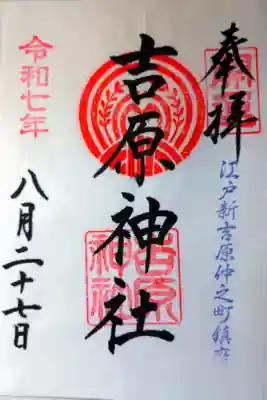 奉拝
江戸新吉原仲之町鎮守
吉原神社
吉原神社
令和七年
八月二十七日